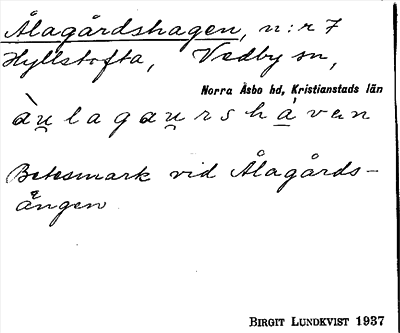 Ålagårdshagen, n:r 7
Hyllstofta, Vedby sn,
Norra Åsbo hd, Kristianstads län
àu̯lagau̯rshàvan
Betesmark vid Ålagårds-
ängen
BIRGIT LUNDKVIST 1937